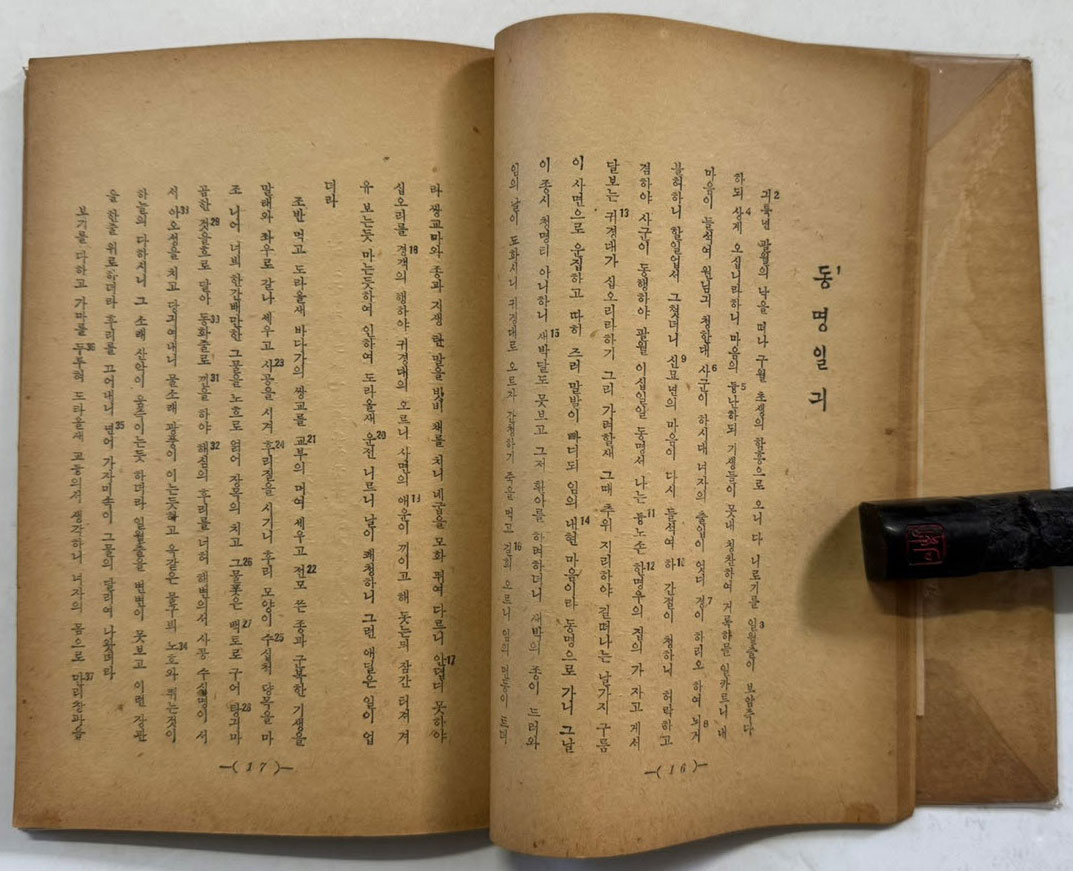 동1명일긔
긔튝년2 팔월의 낙을 떠나 구월 초생의 함흥으로 오니 다 니로기를 일월츌이3 보암즉다
하되 상게4 오십니라하니 마음의 듕난하되5 기생들이 못내 칭찬하여 거록하믈 일카르니 내
마음이 들석여 원님긔 청한대 사군이6 하시대 녀자의 츌입이 엇디 경이7 하리오 하여 뇌거8
불허하니 할일업서 그첫더니 신묘년의9 마음이 다시 들석여 하 간절이10 청하니 허락하고
겸하야 사군이 동행하야 팔월 이십일일 동명셔 나는 듕노손11 한명우의12 집의 가 자고 게서
달보는 귀경대가13 십오리라하기 그리 가려할새 그때 추위 지리하야 길떠나는 날가지 구름
이 사면으로 운집하고 따히 즈러 말발이 빠디되 임의 내현14 마음이라 동명으로 가니 그날
이 종시 청명티 아니하니 새박달도15 못보고 그저 환아를 하며하더니 새박의 종이 드러와
임의 날이 됴화시니 귀경대로 오르자 간청하기 죽을 먹고 길희16 오르니 임의 먼동이 트더
—( 16 )—
라 쌍교마와 종과 기생 탄 말을 밧비 채를 치니 네굽을 모화 뛰여 다르니 안뎝디17 못하야
십오리를 경각의18 행하야 귀경대의 오르니 사면의 애운이19 끼이고 해 돗는듸 잠간 터져 겨
유 보는듯 마는듯하여 인하여 도라올새 운전20 니르니 날이 쾌청하니 그런 애들은 일이 업
더라
조반 먹고 도라올새 바다가의 쌍교를 교부의21 머여 세우고 전모22 쓴 종과 군복한 기생을
말태와 좌우로 갈나 세우고 사공을23 시겨 후리질을24 시기니 후리 모양이 수십척25 당목을 마
조 니어 너븨 한간배만한 그물을 노흐로 얽어 장목의 치고 그물폿은26 백토로27 구어 탕긔마28
곰한 것으흐로29 달아 동화줄로30 끈을31 하야 해심의32 후리를 너허 해변의서 사공 수십명이 서
서 아오성을33 치고 당긔여내니 물소래 광풍이 이는듯하고 옥갇은 물구븨 노호와34 뛰는것이
하늘의 다하시니 그 소래 산악이 움죽이는듯 하더라 일월츌을 변변이 못보고 이런 장관
을 한줄 위로하더라 후리를 끄어내니 연어35 가자미속이 그물의 달리여 나왓더라
보기를 다하고 가마를 두루혀36 도라올새 교듕의서 생각하니 녀자의 몸으로 만리창파를37
—( 17 )—